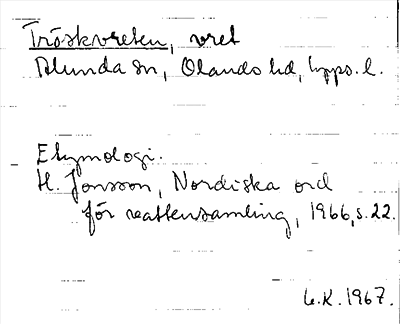 Tröskvreten, vret
Alunda sn, Olands hd, Upps. l.
Etymologi.
H. Jonsson, Nordiska ord
för vattensamling, 1966, s. 22.
L.K. 1967.